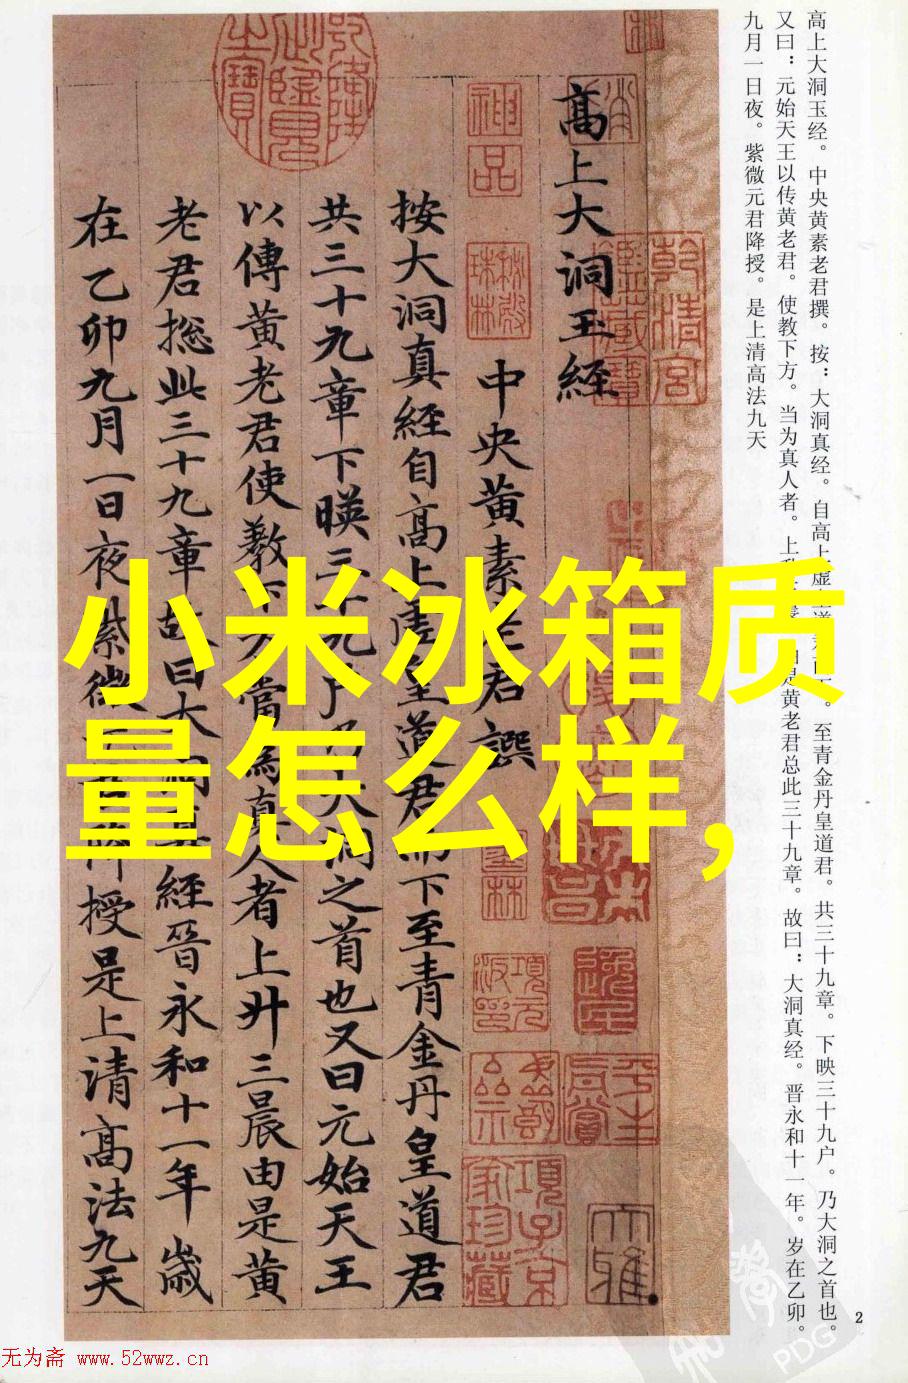 高上大洞玉经。中央黄素老君撰。按：大洞真经。自高上虚皇道君而下。至青金丹皇道君。共三十九章。下映三十九户。乃大洞之首也。
又曰：元始天王以传黄老君。使教下方。当为真人者。上升三晨。由是黄老君总此三十九章。故曰：大洞真经。晋永和十一年。岁在乙卯。
九月一日夜。紫微元君降授。是上清高法九天
高上大洞玉經
中央黄素老君譔
按大洞真經自高上虛皇道君而下至青金丹皇道君
共三十九章下暎三十九户乃大洞之首也又曰元始天王
以傳黄老君使教下方當為真人者上升三晨由是黄
老君摠此三十九章故曰大洞真經晉永和十一年歲
在乙卯九月一日夜紫微元君降授是上清高法九天
乾隆御覽之寶
乾清宮鑑藏寶
神品
秘殿珠林
項元汴印
項子京家珍藏
小米冰箱质
量怎么样,
2
PDG
无为斋 www.52wwz.cn